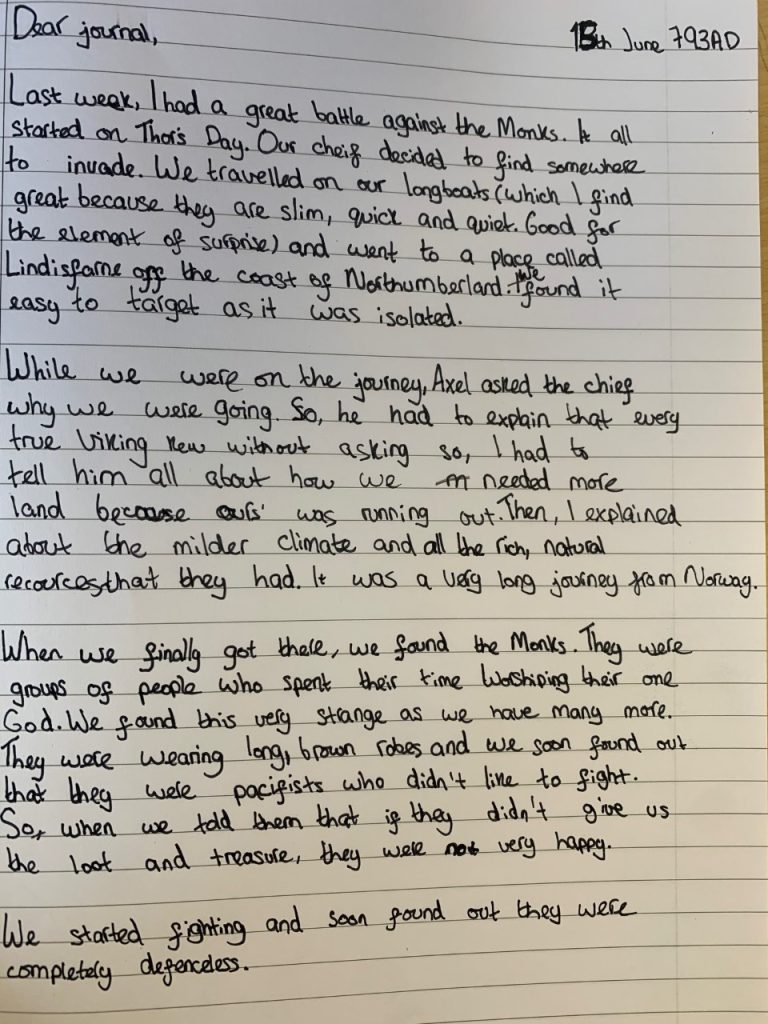 Dear journal,
15th June 793AD
Last week, I had a great battle against the Monks. It all
started on Thor's Day. Our cheif decided to find somewhere
to invade. We travelled on our longboats (which I find
great because they are slim, quick and quiet. Good for
the element of surprise) and went to a place called
Lindisfarne off the coast of Northumberland. We found it
easy to target as it was isolated.
While we were on the journey, Axel asked the chief
why we were going. So, he had to explain that every
true Viking kew without asking so, I had to
tell him all about how we needed more
land because ours' was running out. Then, I explained
about the milder climate and all the rich, natural
recources that they had. It was a very long journey from Norway.
When we finally got there, we found the Monks. They were
groups of people who spent their time worshiping their one
God. We found this very strange as we have many more.
They were wearing long, brown robes and we soon found out
that they were pacifists who didn't like to fight.
So, when we told them that if they didn't give us
the loot and treasure, they were not very happy.
We started fighting and soon found out they were
completely defenceless.